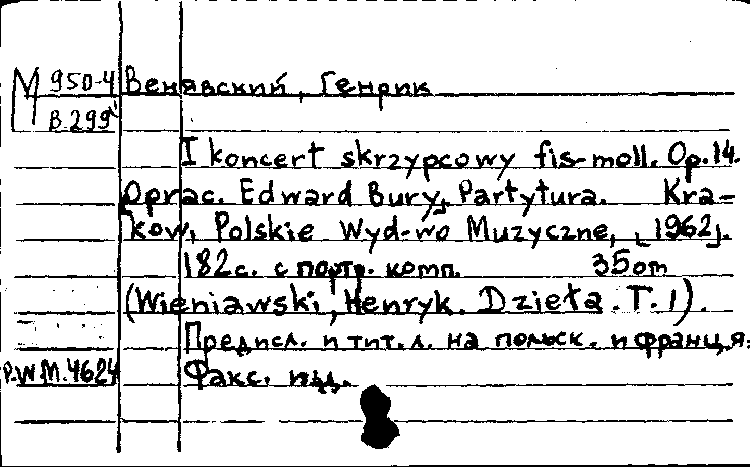 М 950-4 Венявский, Генрик
В 299
I koncert skrzypcowy fis-moll. Op.14.
Oprac. Edward Bury. Partytura. Kra-
ków, Polskie Wyd-wo Muzyczne, [1962].
182с. с портр. комп. 35cm
(Wieniawski, Henryk. Dzieła. T.1).
Предисл. и тит. л. на польск. и франц. яз.
P.W.M.4624 Факс. изд.